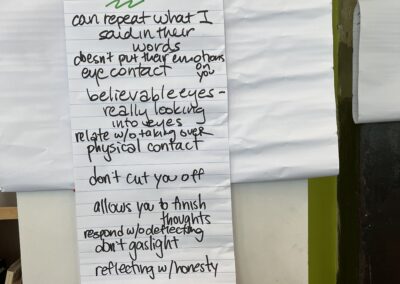 can repeat what I
said in their
words
doesn't put their emotions
on
you
eye contact
believable eyes -
really looking
into eyes
relate w/o taking over
physical contact
don't cut you off
allows you to finish
thoughts
respond w/o deflecting
don't gaslight
reflecting w/honesty